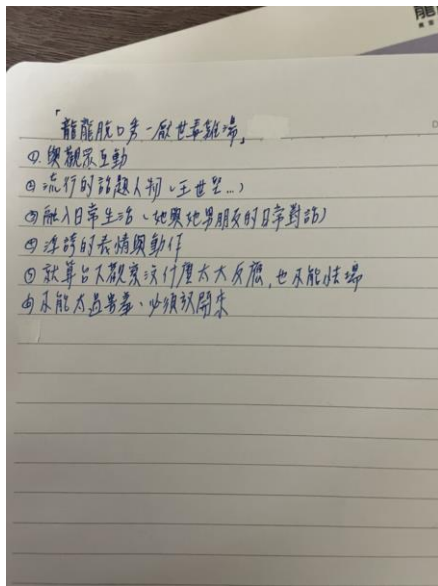 龍
「龍龍脫口秀-厭世毒雞湯」
①與觀眾互動
②流行的話題人物(王世堅...)
③融入日常生活(她與她男朋友的日常對話)
④浮誇的表情與動作
⑤就算台下觀眾沒什麼太大反應,也不能怯場
⑥不能太過害羞、必須放開來